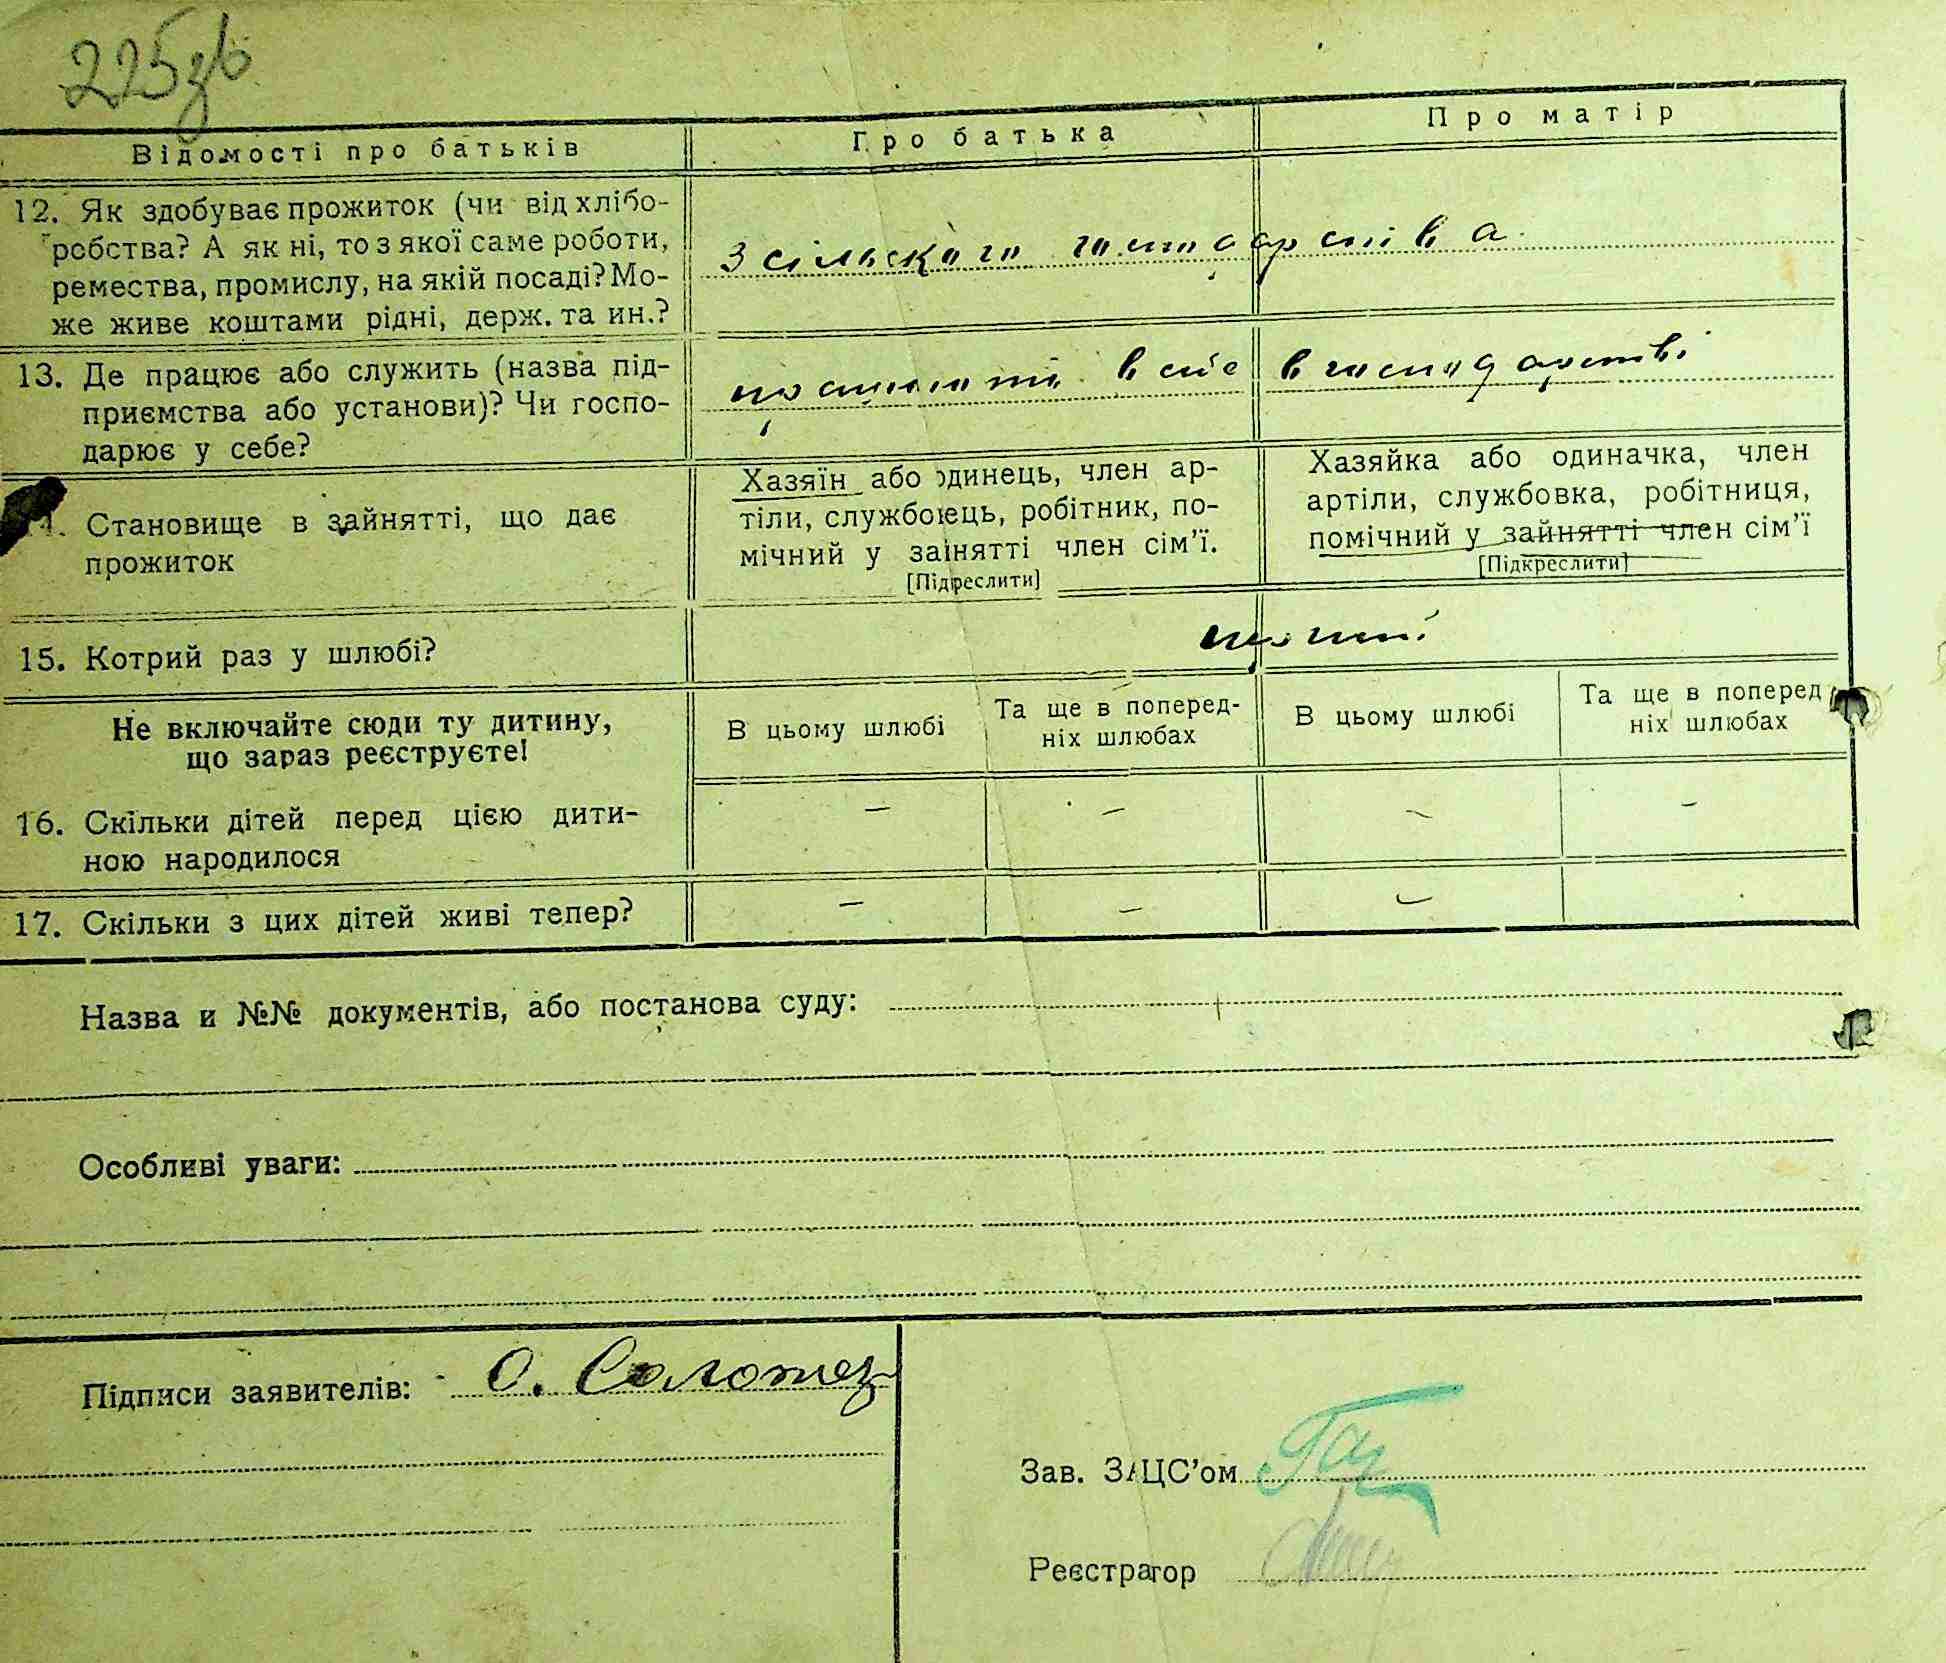 225зв
Відомості про батьків
Про батька
Про матір
12. Як здобуває прожиток (чи від хлібо-
робства? А як ні, то з якої саме роботи,
ремества, промислу, на якій посаді? Мо-
же живе коштами рідні, держ. та ин.?
з сільского господарства
13. Де працює або служить (назва під-
приємства або установи)? Чи госпо-
дарює у себе?
в своє в господарстві
14. Становище в зайнятті, що дає
прожиток
Хазяїн або одинець, член ар-
тіли, службовець, робітник, по-
мічний у заінятті член сім’ї.
[Підкреслити]
Хазяйка або одиначка, член
артіли, службовка, робітниця,
помічний у зайнятті член сім’ї
[Підкреслити]
15. Котрий раз у шлюбі?
Не включайте сюди ту дитину,
що зараз реєструєте!
В цьому шлюбі
Та ще в поперед-
ніх шлюбах
В цьому шлюбі
Та ще в поперед
ніх шлюбах
16. Скільки дітей перед цією дити-
ною народилося
– – – –
17. Скільки з цих дітей живі тепер?
– – –
Назва и №№ документів, або постанова суду:
Особливі уваги:
Підписи заявителів:
О.
Зав. ЗАЦС’ом
Реєстратор